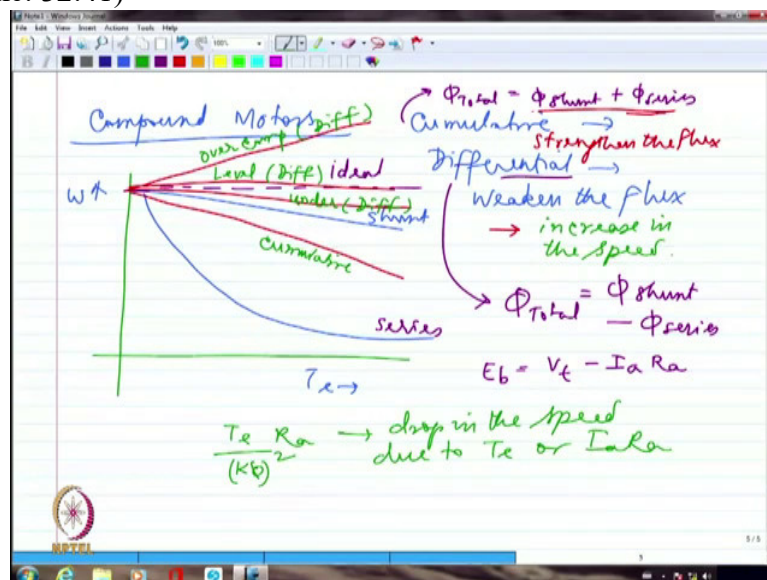 Note1 - Windows Journal
File Edit View Insert Actions Tools Help
100%
Compound Motors
over comp (Diff)
Level (Diff) ideal
under (Diff)
shunt
Cummulative
series
ω↑
Te→
ΦTotal = Φshunt + Φseries
Cumulative →
Strengthen the flux
Differential →
Weaken the flux
→ increase in
the speed.
ΦTotal = Φshunt
- Φseries
Eb = Vt - Ia Ra
Te Ra → drop in the speed
(Kφ)² due to Te or IaRa
NPTEL
5/5
5